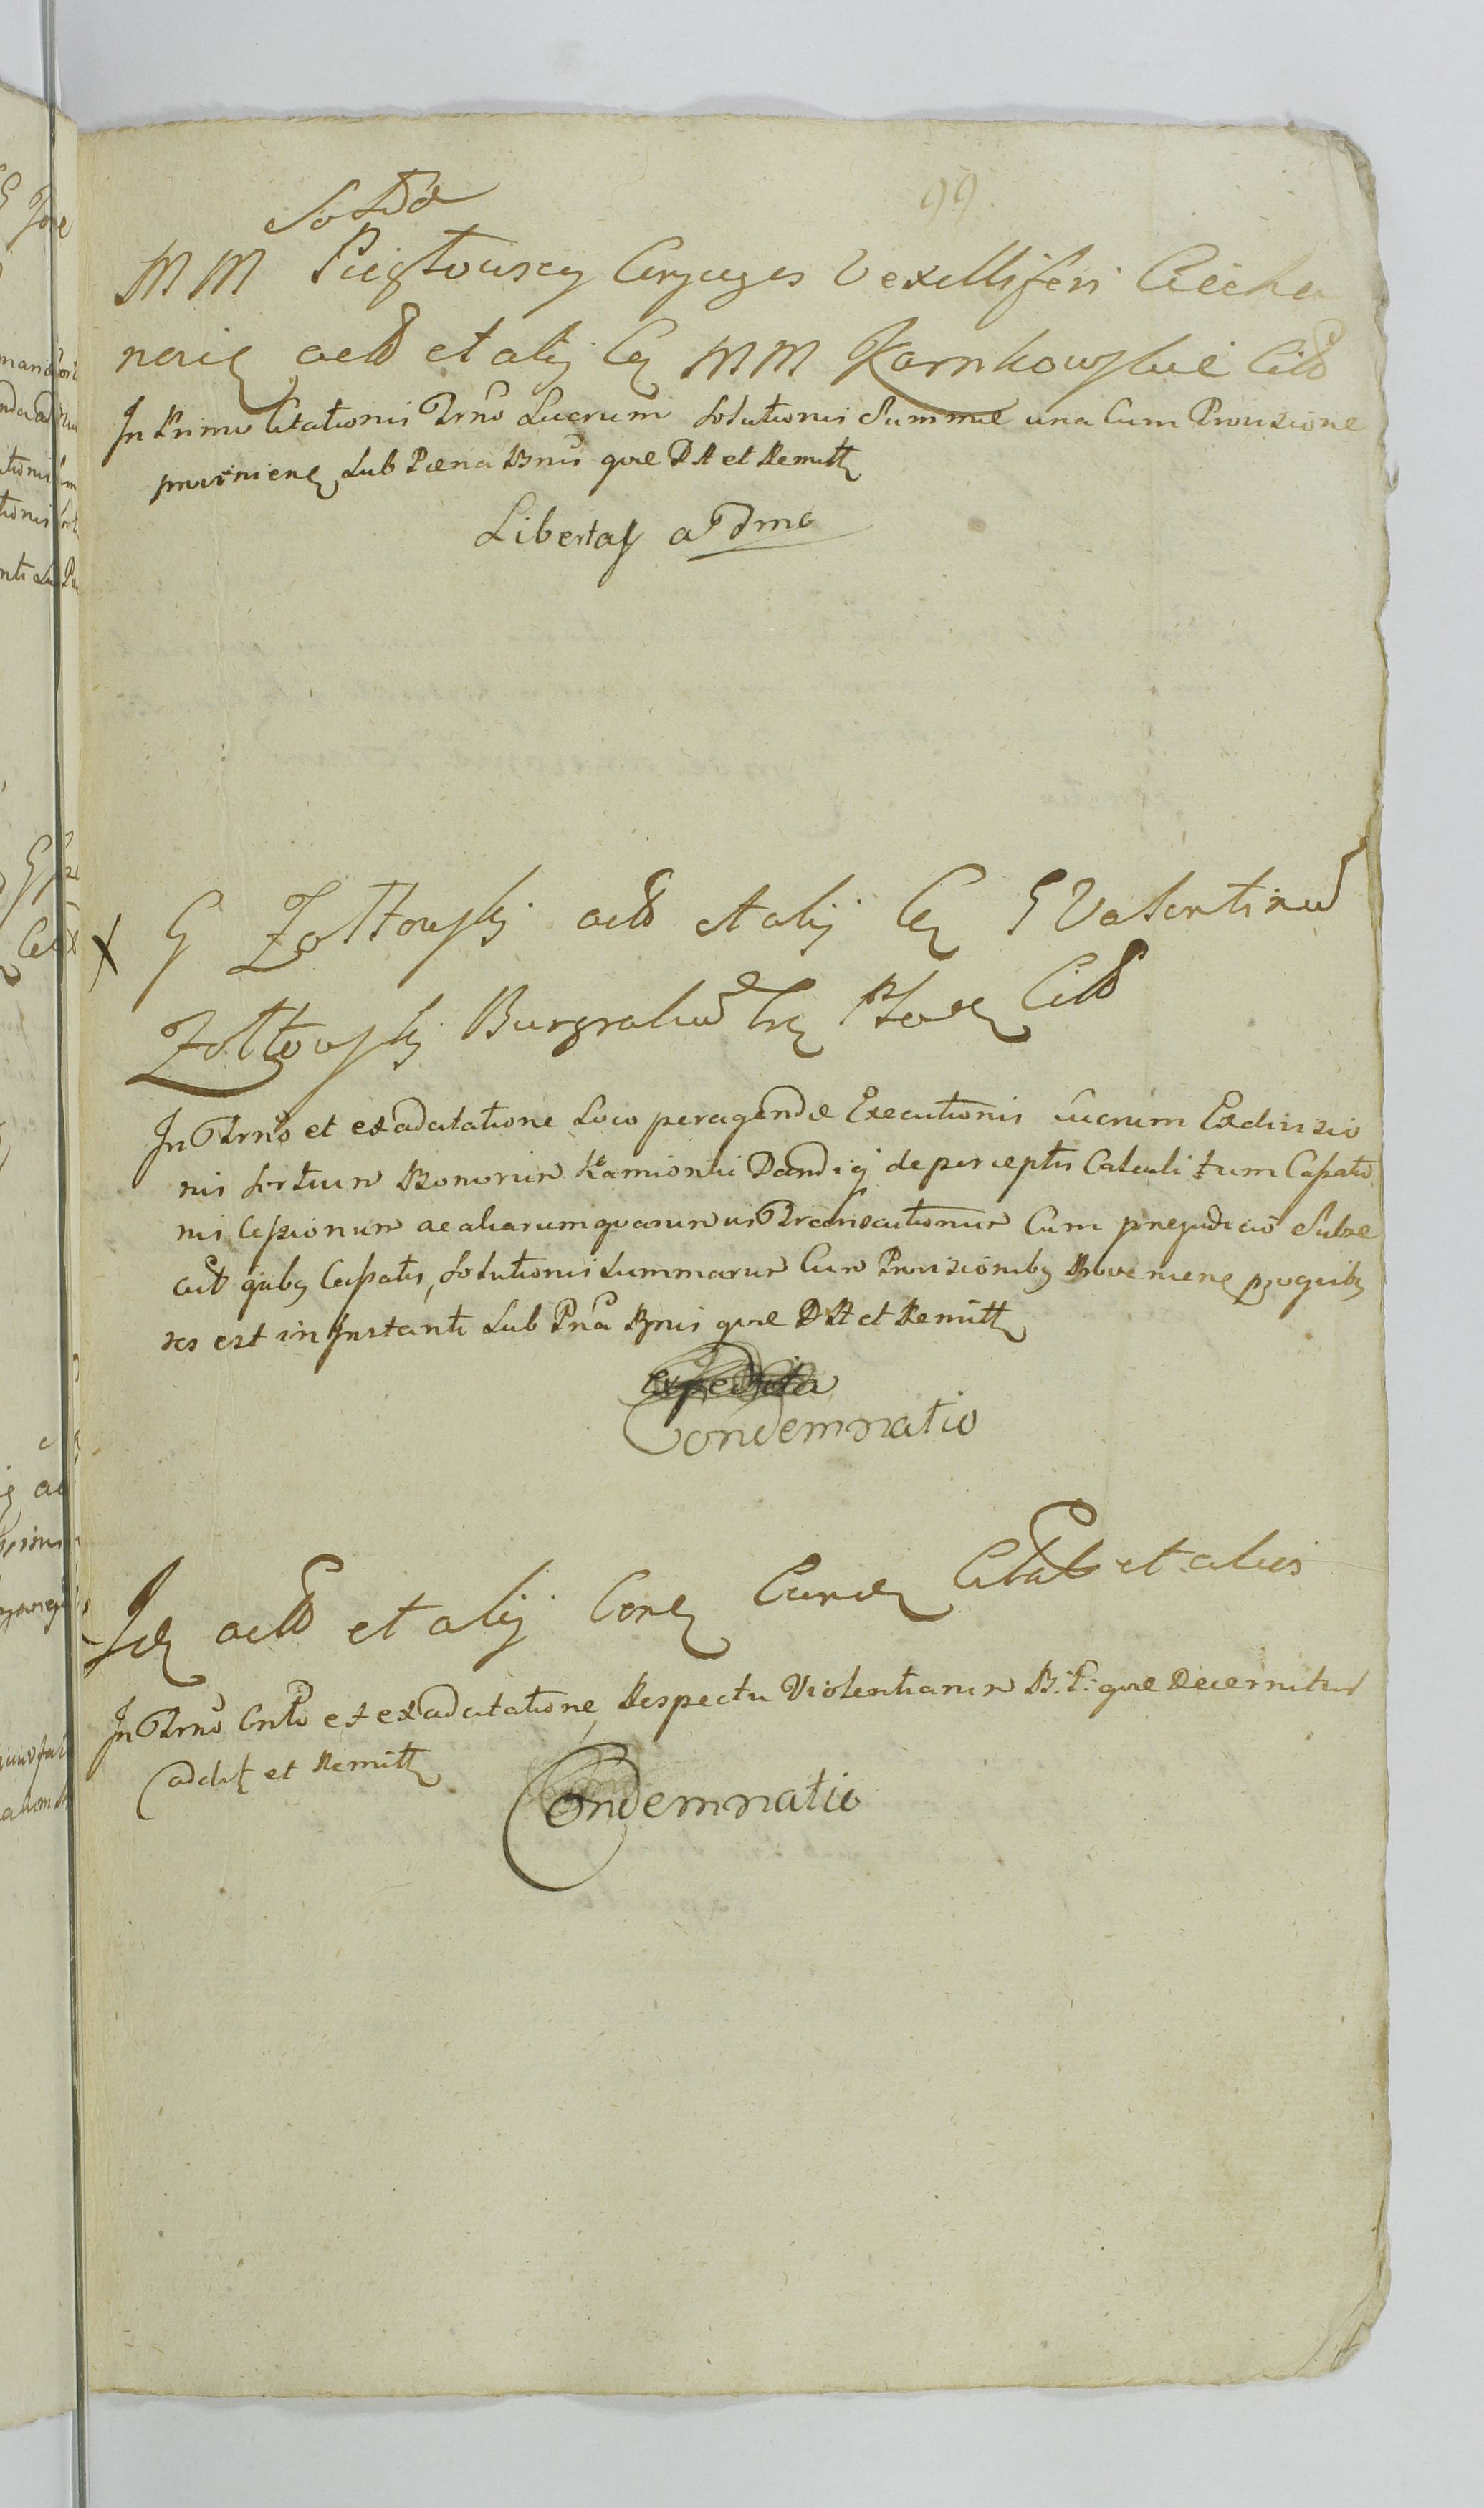 99
MM Pięstowscy Conjuges Vexilliferi Ciecha
novie actt et alij Cę MM Karnkowskie Citt
In Primo Citationis Trno Lucrum Solutionis Summæ una Cum Provizione
provenienę Sub Pæna Bnis quæ DA et Remittę
Libertas a Tdmo
x G Zołtowskj actt et alij Cę G Valentinū
Zołtowskj Burgrabiū Płocę Citt
In Trno et ex adcitatione Loco peragendæ Executionis Lucrum Exdivizio
nis Sortium Bonorum Kamionki Dandiq de perceptis Calculi tum Cassatio
nis Cessionum ac aliarumquarumvis Transactionum Cum prejudicio Subse
cut quibą Cassatis, Solutionis Summarum Cum Provizionibą Provenienę pro quibą
res est in Instanti Sub Pna Bnis quæ DA et Remittę
Expedita
Condemnatio
Idę actt et alij Conę Eundę Citat et alios
In Trno Cnto et ex adcitatione Respectu Violentiarum B: P: quæ Decernitur
adcitę et Remittę
Condemnatio